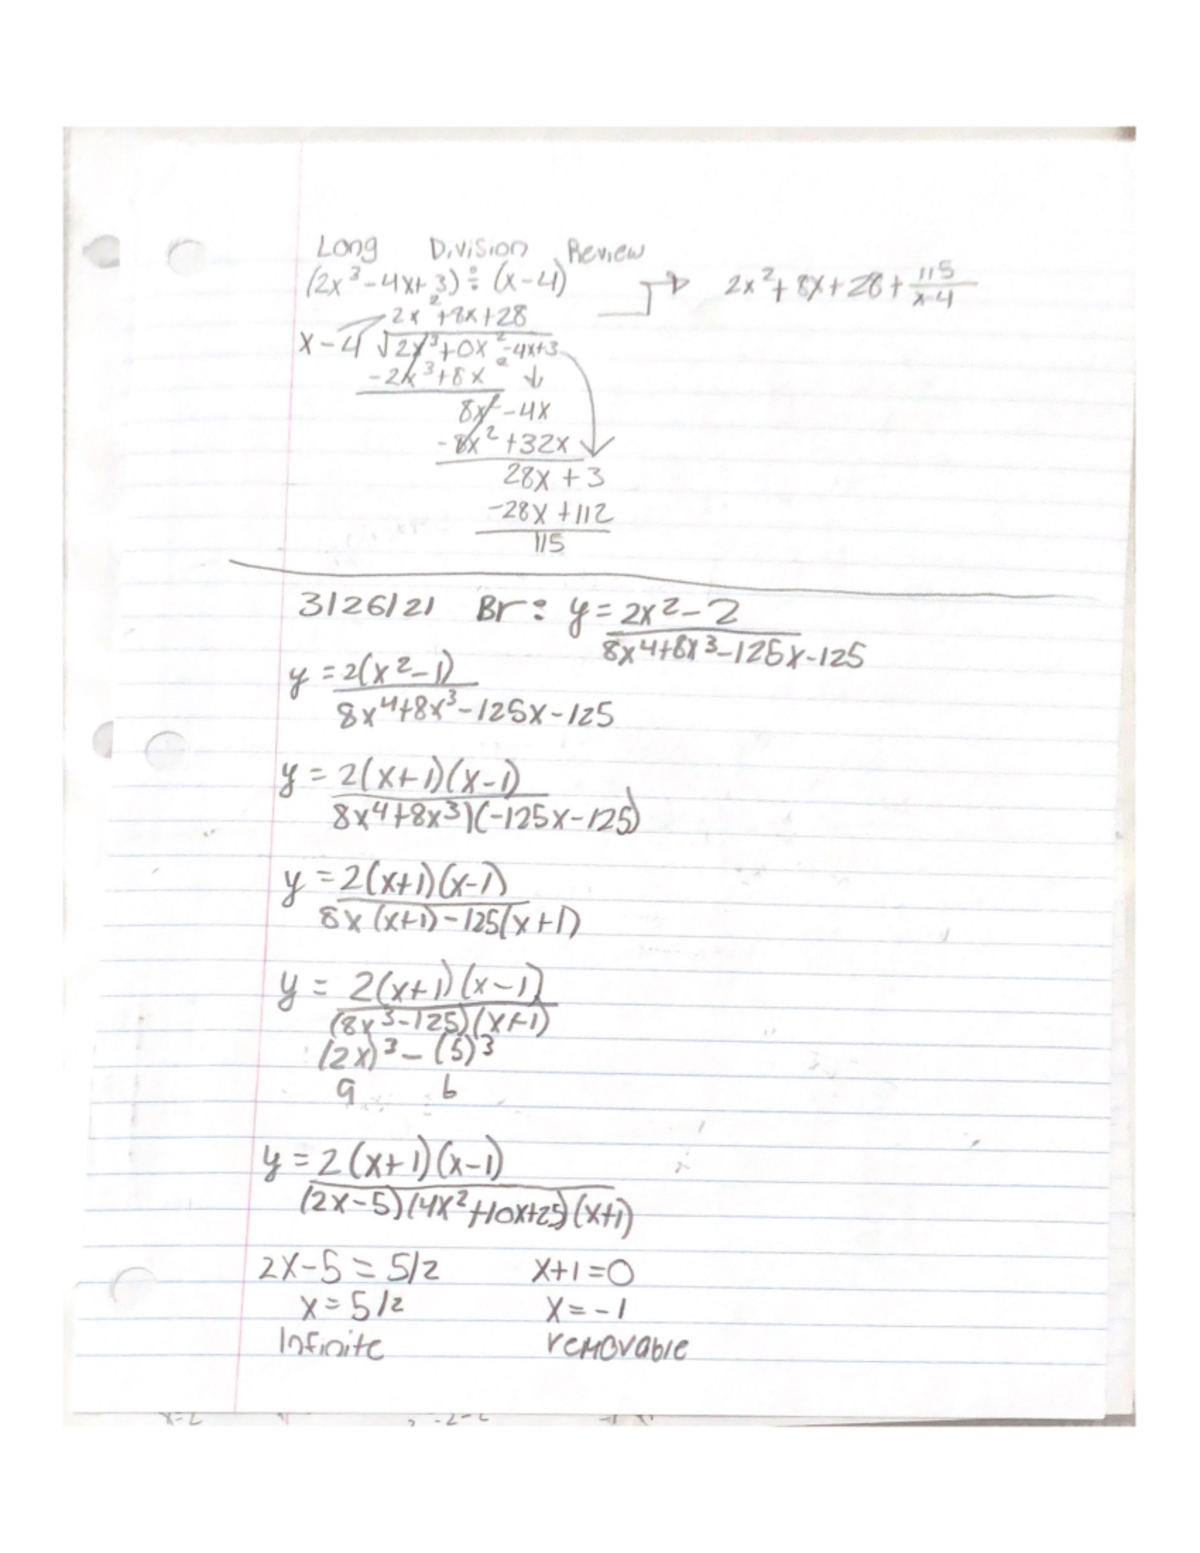 Long Division Review
(2x³-4x+3) ÷ (x-4) → 2x²+8x+28+115/x-4
2x²+8x+28
x-4 √2x³+0x²-4x+3
-2x³+8x² ↓
8x²-4x
-8x²+32x
28x+3
-28x+112
115
3/26/21 Br: y=2x²-2
8x⁴+8x³-125x-125
y=2(x²-1)
8x⁴+8x³-125x-125
y=2(x+1)(x-1)
8x⁴+8x³)(-125x-125)
y=2(x+1)(x-1)
8x(x+1)-125(x+1)
y= 2(x+1)(x-1)
(8x³-125)(x+1)
(2x)³-(5)³
a b
y=2(x+1)(x-1)
(2x-5)(4x²+10x+25)(x+1)
2x-5=5/2 x+1=0
x=5/2 x=-1
Infinite removable